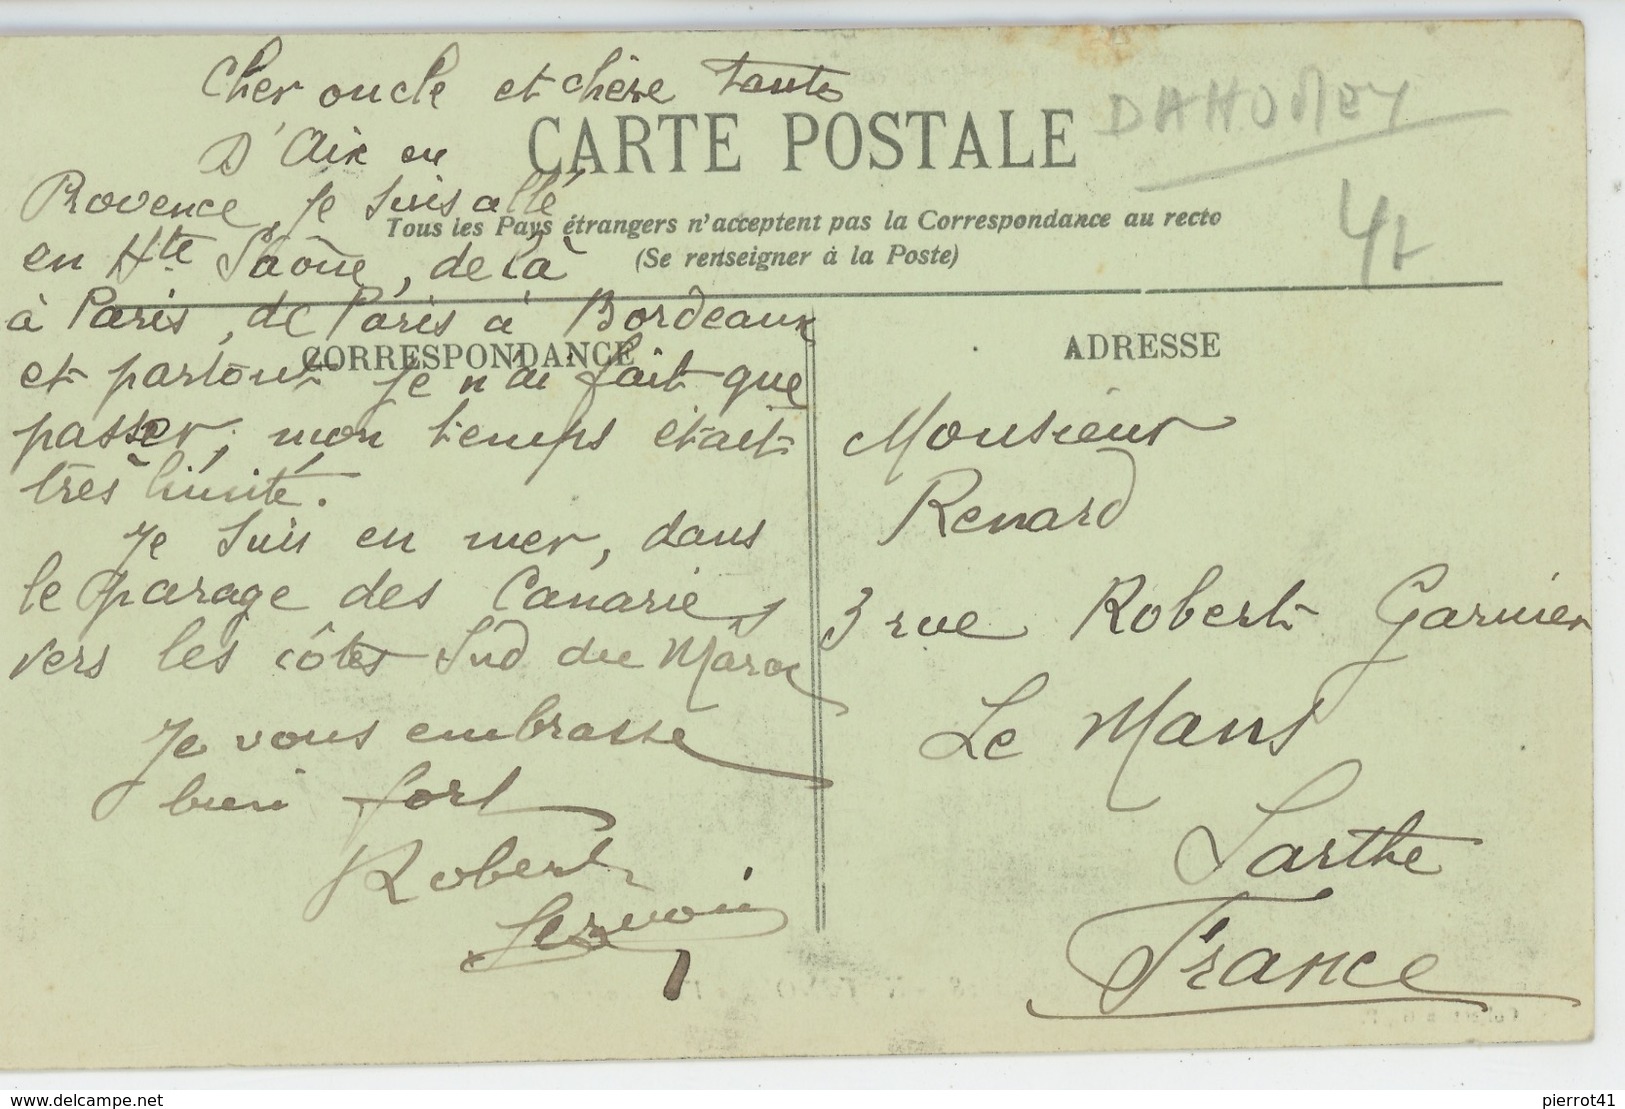 Cher oncle et chère Tante
D'Aix en
CARTE POSTALE
DAHOMEY
Provence, je suis allé
Tous les Pays étrangers n'acceptent pas la Correspondance au recto
(Se renseigner à la Poste)
en Hte Saône, de là
à Paris, de Paris à Bordeaux
CORRESPONDANCE
et partout je n'ai fait que
passer, mon temps était
très limité.
Je suis en mer, dans
le parage des Canaries
vers les côtes Sud du Maroc
Je vous embrasse
bien fort
Robert
ADRESSE
Monsieur
Renard
3 rue Robert Garnier
Le Mans
Sarthe
France
www.delcampe.net
pierrot41